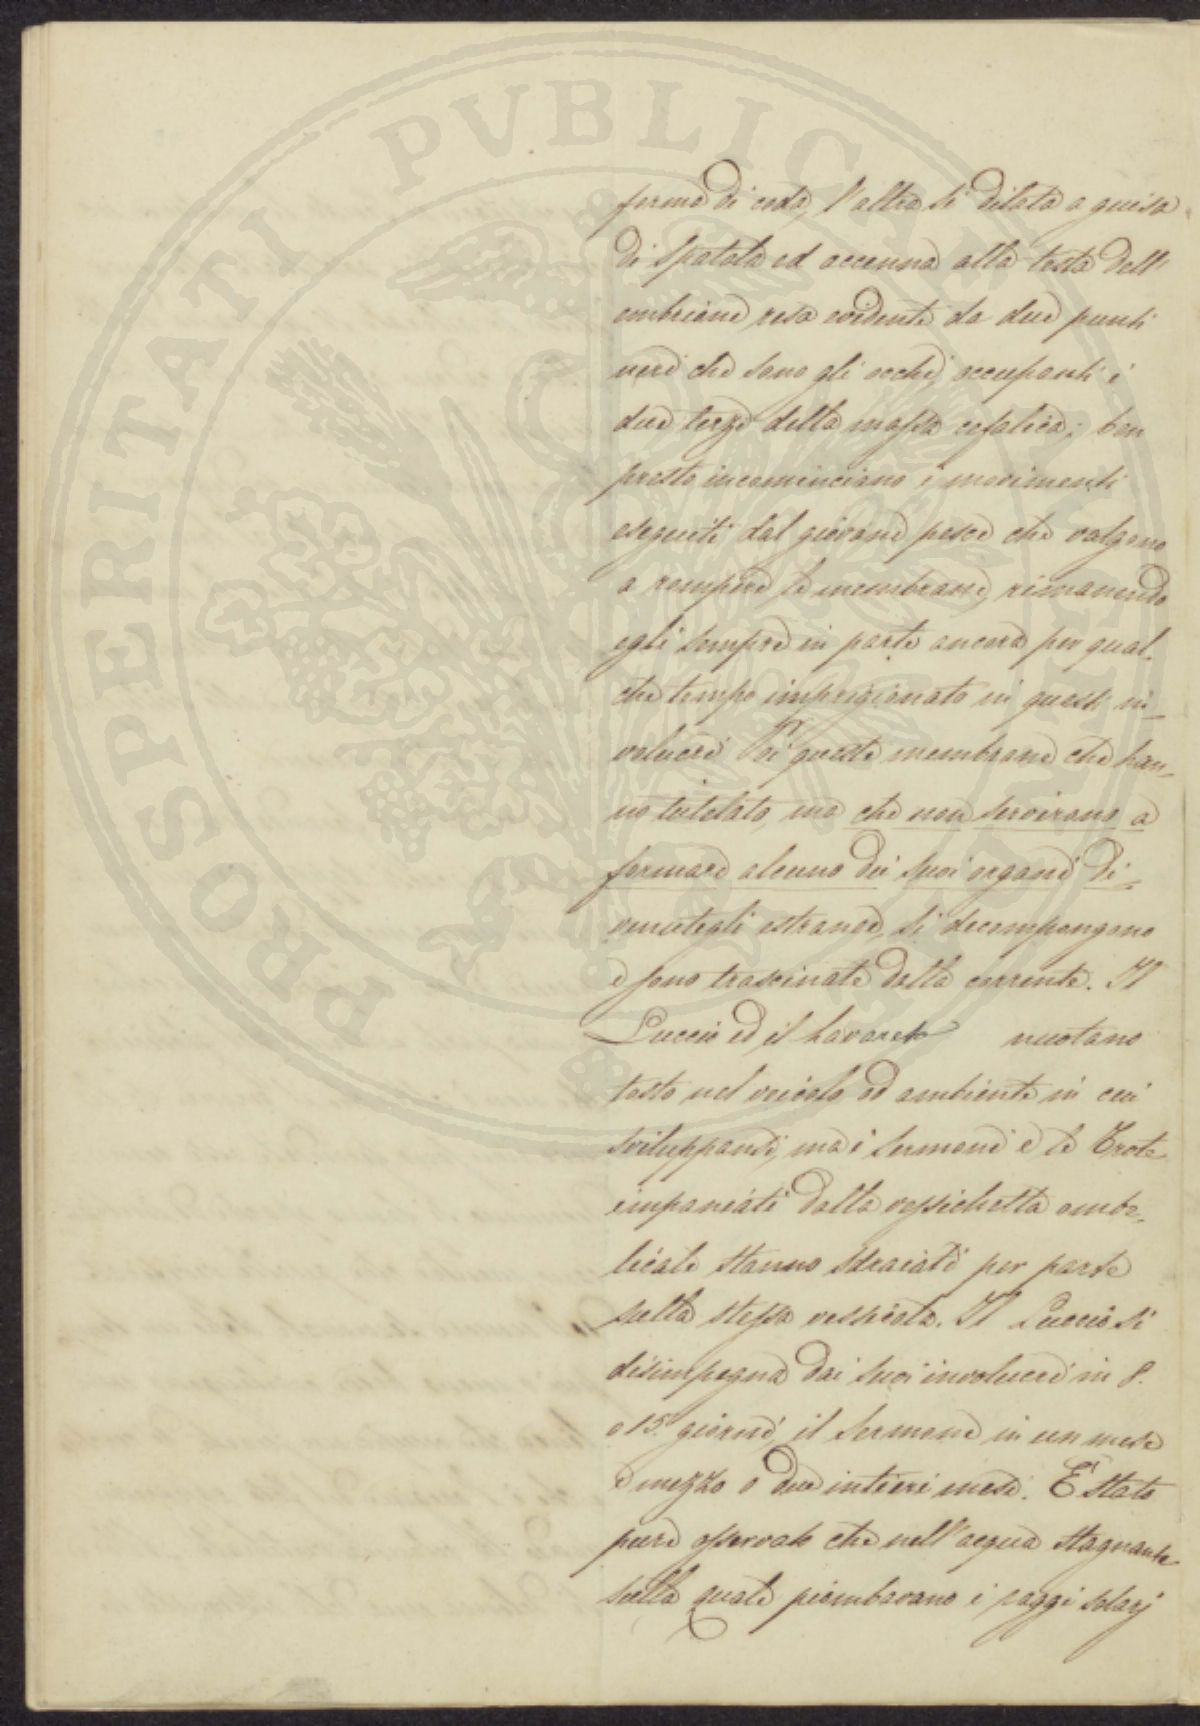 PROSPERITATI PVBLICAE
forma di coda, l'altra si dilata a guisa
di spatola ed accenna alla testa dell'
embrione resa evidente da due punti
neri che sono gli occhi, occupanti i
due terzi della massa cefalica; ben
presto incominciano i movimenti
eseguiti dal giovane pesce che valgono
a rompere le membrane, rimanendo
egli sempre in parte ancora per qual-
che tempo imprigionato in questi in-
volucri di queste membrane che han-
no tutelato, ma che non servirono a
formare alcuno dei suoi organi di-
venutegli estranee, si decompongono
e sono trascinate dalla corrente. Il
Luccio ed il Lavaret nuotano
tosto nel veicolo od ambiente in cui
sviluppansi, ma i Sermoni e le Trote
impaniati dalla vessichetta ombe-
licale stanno sdraiati per parte
sulla stessa vessicola. Il Luccio si
disimpegna dai suoi involucri in 8.
o 15 giorni, il Sermone in un mese
e mezzo o due intieri mesi. E' stato
pure osservato che nell'acqua stagnante
sulla quale piombavano i raggi solarj